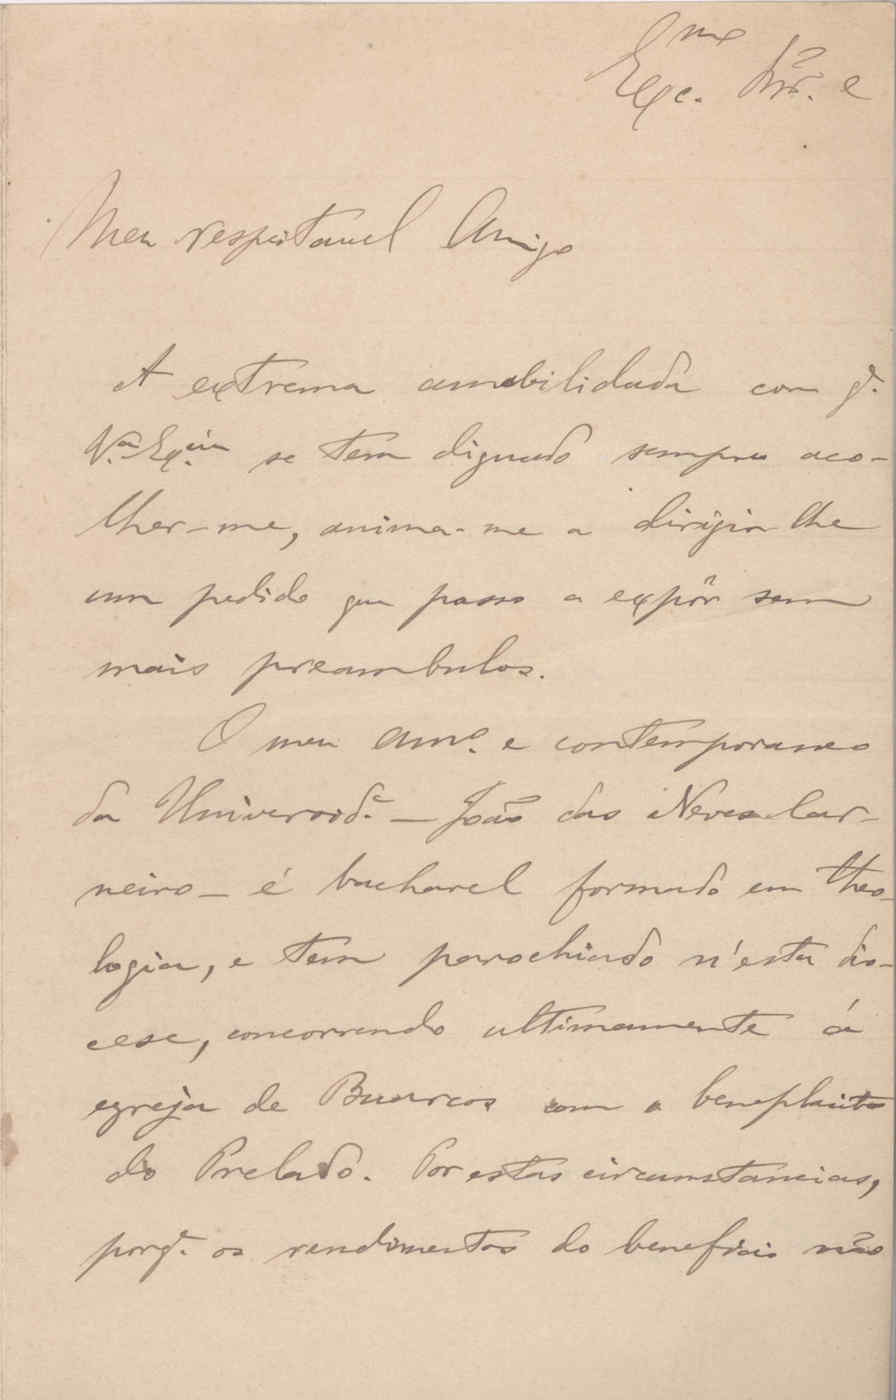 Exc.mo Snr. e
Meu respeitavel Amigo
A extrema amabilidade com q.
V.a Ex.cia se tem dignado sempre aco-
lher-me, anima-me a dirigir lhe
um pedido que passo a expôr sem
mais preambulos.
O meu am.o e contemporaneo
da Universid.e — João das Neves Car-
neiro — é bacharel formado em theo-
logia, e tem parochiado n'esta dio-
cese, concorrendo ultimamente á
egreja de Buarcos com o beneplacito
do Prelado. Por estas circumstancias,
porq. os rendimentos do beneficio não